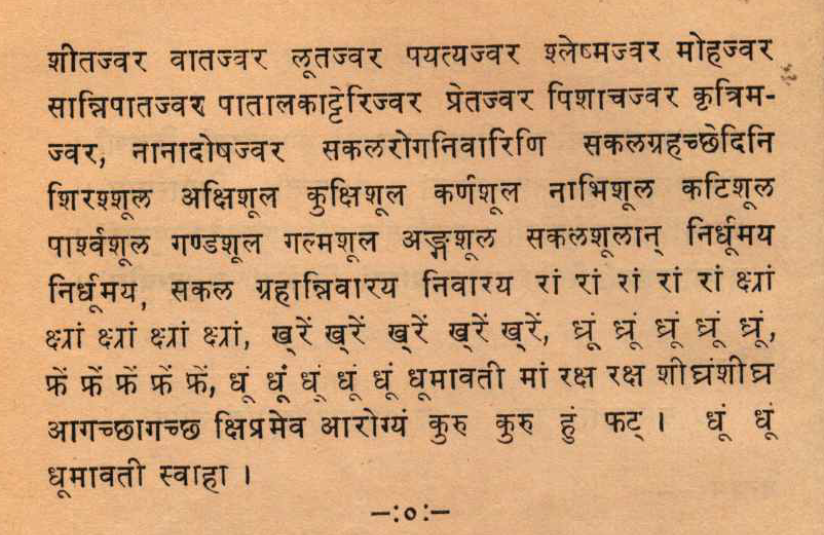 शीतज्वर वातज्वर लूतज्वर पयत्यज्वर श्लेष्मज्वर मोहज्वर
सान्निपातज्वर पातालकाट्टेरिज्वर प्रेतज्वर पिशाचज्वर कृत्रिम-
ज्वर, नानादोषज्वर सकलरोगनिवारिणि सकलग्रहच्छेदिनि
शिरश्शूल अक्षिशूल कुक्षिशूल कर्णशूल नाभिशूल कटिशूल
पार्श्वशूल गण्डशूल गल्मशूल अङ्गशूल सकलशूलान् निर्धूमय
निर्धूमय, सकल ग्रहान्निवारय निवारय रां रां रां रां रां क्ष्रां
क्ष्रां क्ष्रां क्ष्रां क्ष्रां, ख्रें ख्रें ख्रें ख्रें ख्रें, ध्रूं ध्रूं ध्रूं ध्रूं ध्रूं,
फ्रें फ्रें फ्रें फ्रें फ्रें, धूं धूं धूं धूं धूं धूमावती मां रक्ष रक्ष शीघ्रंशीघ्र
आगच्छागच्छ क्षिप्रमेव आरोग्यं कुरु कुरु हुं फट् । धूं धूं
धूमावती स्वाहा ।
—:०:—